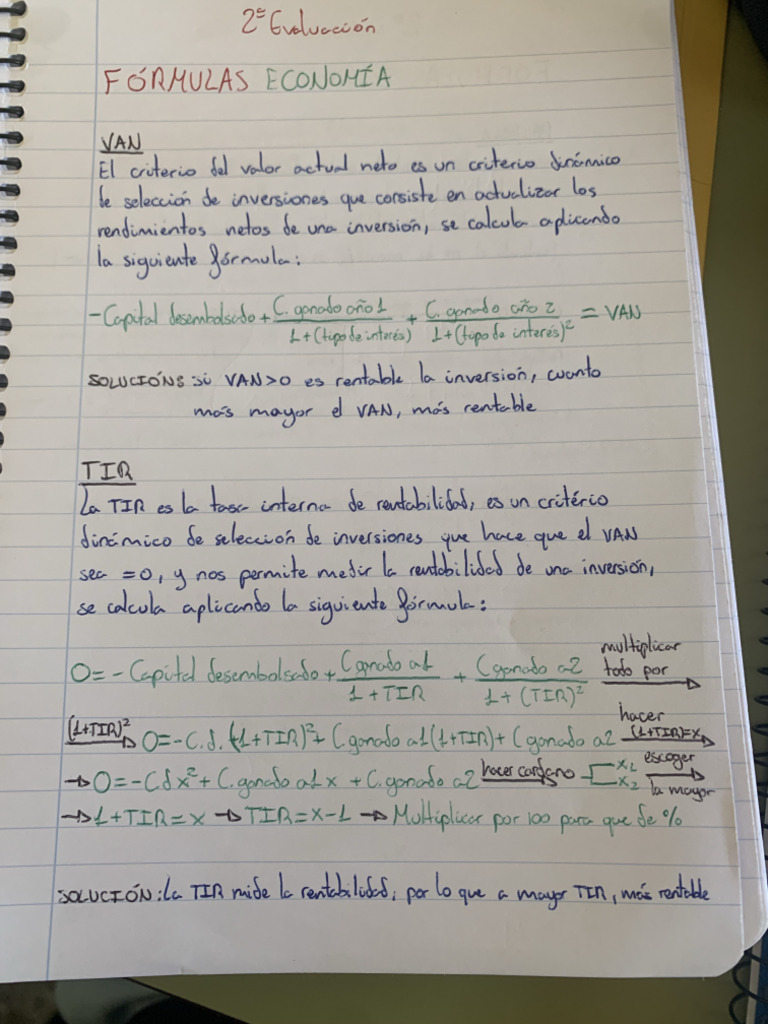 2ª Evaluación
FÓRMULAS ECONOMÍA
VAN
El criterio del valor actual neto es un criterio dinámico
de selección de inversiones que consiste en actualizar los
rendimientos netos de una inversión, se calcula aplicando
la siguiente fórmula:
-Capital desembolsado + C. ganado año 1 / 1+(tipo de interés) + C. ganado año 2 / 1+(tipo de interés)² = VAN
SOLUCIÓN: si VAN>0 es rentable la inversión, cuanto
más mayor el VAN, más rentable
TIR
La TIR es la tasa interna de rentabilidad, es un critério
dinámico de selección de inversiones que hace que el VAN
sea =0, y nos permite medir la rentabilidad de una inversión,
se calcula aplicando la siguiente fórmula:
0=-Capital desembolsado + C ganado a1 / 1+TIR + C ganado a2 / 1+(TIR)² multiplicar todo por →
(1+TIR)² → 0=-C.d.(1+TIR)²+ C.ganado a1(1+TIR)+ C ganado a2 hacer (1+TIR)=x →
→ 0=-Cdx²+ C.ganado a1x + C.ganado a2 hacer cardano x₁ x₂ escoger la mayor →
→ 1+TIR=x → TIR=x-1 → Multiplicar por 100 para que de %
SOLUCIÓN: La TIR mide la rentabilidad, por lo que a mayor TIR, más rentable